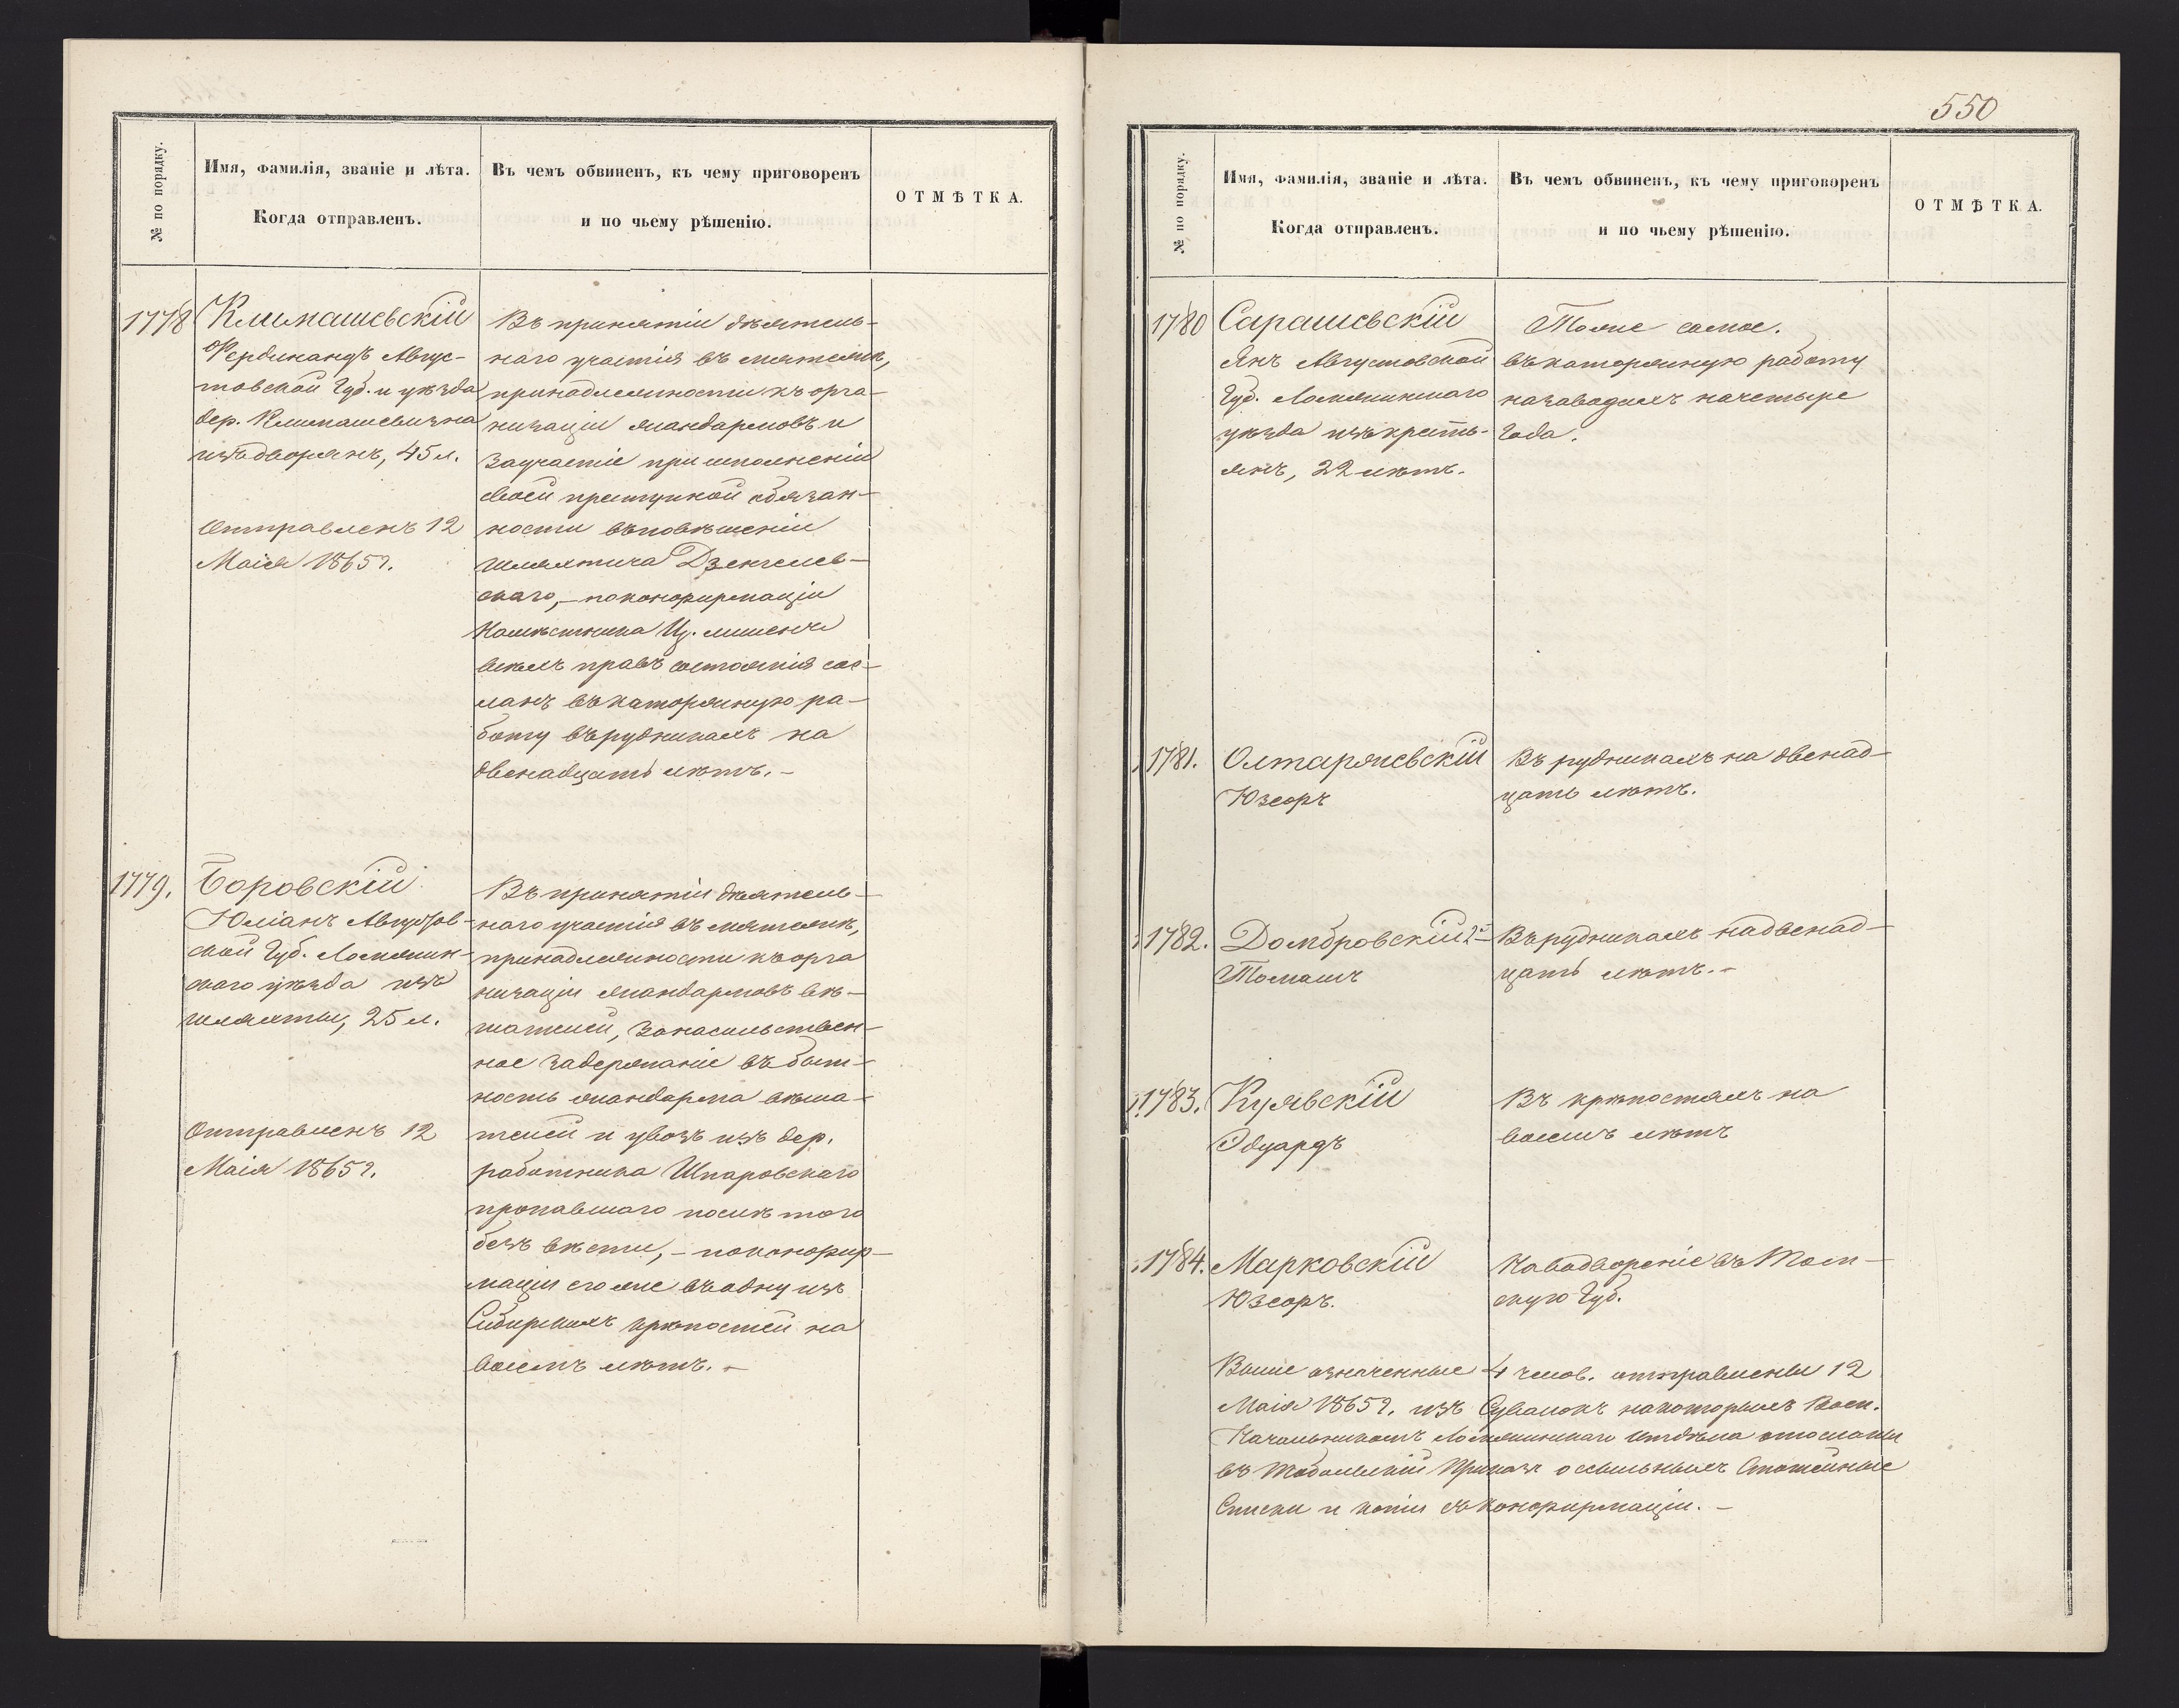 550
№ по порядку.
Имя, фамилія, званіе и лѣта.
Когда отправленъ.
Въ чемъ обвиненъ, къ чему приговоренъ
и по чьему рѣшенію.
ОТМѢТКА.
1778
Климашевскій
Фердинандъ Авгус-
товской Губ. и уѣзда
дер. Климашевизна
изъ дворянъ, 45 л.
Отправленъ 12
Маія 1865 г.
Въ принятіи дѣятель-
наго участія въ мятежѣ,
принадлежности къ орга-
низаціи жандармовъ и
за участіе при исполненіи
своей преступной обязан-
ности въ повѣшеніи
шляхтича Дзенгелев-
скаго, – по конфирмаціи
Намѣстника Ц. лишенъ
всѣхъ правъ состоянія сос-
ланъ въ каторжную ра-
боту въ рудникахъ на
двенадцать лѣтъ. –
1779.
Боровскій
Юліанъ Августов-
ской Губ. Ломжин-
скаго уѣзда изъ
шляхты, 25 л.
Отправленъ 12
Маія 1865 г.
Въ принятіи дѣятель-
наго участія въ мятежѣ,
принадлежности къ орга
низаціи жандармовъ вѣ-
шателей, за насильствен-
ное задержаніе въ быт-
ность жандарма вѣша-
телей и увозъ изъ дер.
работника Шпаровскаго
пропавшаго послѣ того
безъ вѣсти, – по конфир-
маціи его же въ одну изъ
Сибирскихъ крѣпостей на
восемь лѣтъ. –
№ по порядку.
Имя, фамилія, званіе и лѣта.
Когда отправленъ.
Въ чемъ обвиненъ, къ чему приговоренъ
и по чьему рѣшенію.
ОТМѢТКА.
1780
Сарашевскій
Янъ Августовской
Губ. Ломжинскаго
уѣзда изъ кресть-
янъ, 22 лѣтъ.
Тоже самое.
въ каторжную работу
на заводахъ на четыре
года.
1781.
Олтаржевскій
Юзефъ
Въ рудникахъ на двенад-
цать лѣтъ.
1782.
Домбровскій 2й
Томашъ
Въ рудникахъ на двенад-
цать лѣтъ. –
1783.
Куявскій
Эдуардъ
Въ крѣпостяхъ на
восемь лѣтъ
1784.
Марковскій
Юзефъ.
На водвореніе въ Том-
скую Губ.
Выше означенные 4 челов. отправлены 12
Маія 1865 г. изъ Сувалокъ на которыхъ Воен.
Начальникомъ Ломжинскаго Отдѣла отосланы
въ Тобольскій Приказъ о ссыльныхъ Статейные
Списки и копіи съ конфирмаціи. –